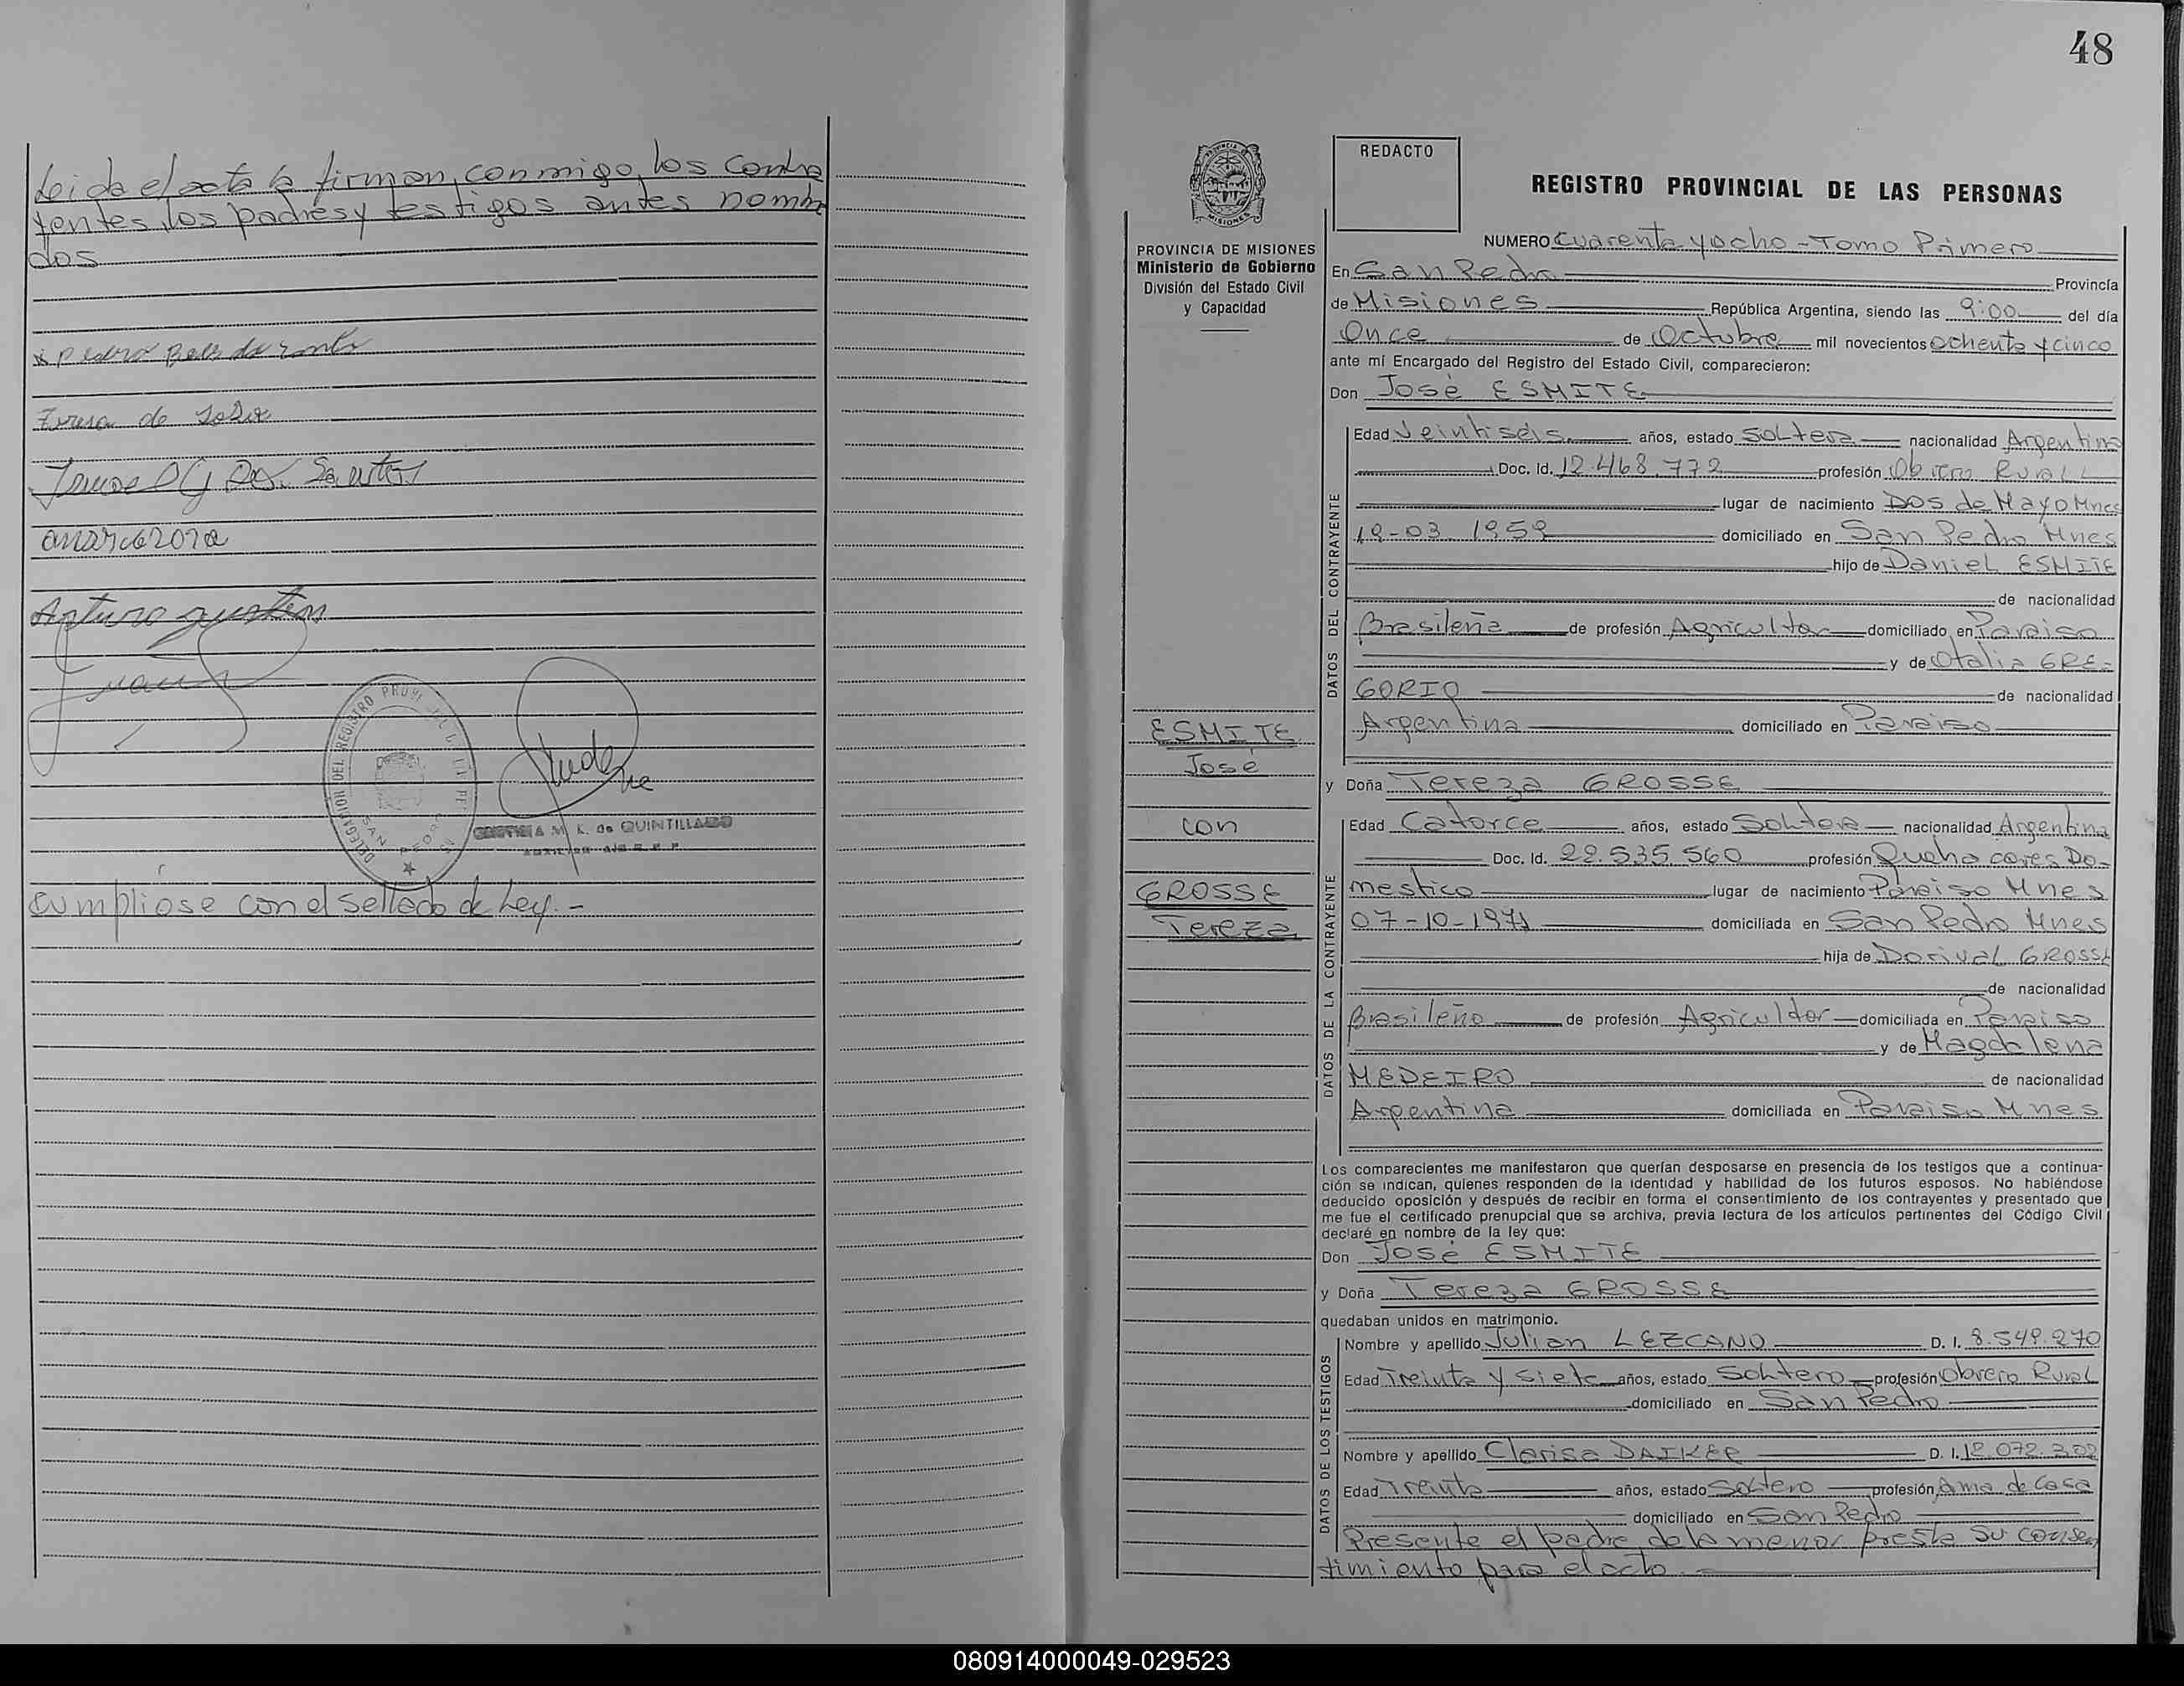 Leida el acta la firman, conmigo, los contra
yentes, los padres y testigos antes nombra
dos
Teresa de
Dos Santos
Arturo
DELEGACION DEL REGISTRO PROV. DE LAS PERSONAS
SAN PEDRO
M. K. de QUINTILLANO
Cumpliose con el sellado de Ley.-
48
REDACTO
REGISTRO PROVINCIAL DE LAS PERSONAS
PROVINCIA DE MISIONES
Ministerio de Gobierno
División del Estado Civil
y Capacidad
ESMITE
José
con
GROSSE
Tereza
NUMERO Cuarenta y ocho - Tomo Primero
En San Pedro Provincia
de Misiones República Argentina, siendo las 9:00 del día
Once de Octubre mil novecientos ochenta y cinco
ante mí Encargado del Registro del Estado Civil, comparecieron:
Don José ESMITE
DATOS DEL CONTRAYENTE
Edad Veintiséis años, estado Soltero nacionalidad Argentina
Doc. Id. 12.468.772 profesión Obrero Rural
lugar de nacimiento Dos de Mayo Mnes
19-03-1959 domiciliado en San Pedro Mnes
hijo de Daniel ESMITE
de nacionalidad
Brasileña de profesión Agricultor domiciliado en Paraiso
y de Otalia GRE-
GORIO de nacionalidad
Argentina domiciliado en Paraiso
y Doña Tereza GROSSE
DATOS DE LA CONTRAYENTE
Edad Catorce años, estado Soltera nacionalidad Argentina
Doc. Id. 22.535.560 profesión Quehaceres Do-
mestico lugar de nacimiento Paraiso Mnes
07-10-1971 domiciliada en San Pedro Mnes
hija de Dorival GROSSE
de nacionalidad
Brasileño de profesión Agricultor domiciliada en Paraiso
y de Magdalena
MEDEIRO de nacionalidad
Argentina domiciliada en Paraiso Mnes
Los comparecientes me manifestaron que querían desposarse en presencia de los testigos que a continua-
ción se indican, quienes responden de la identidad y habilidad de los futuros esposos. No habiéndose
deducido oposición y después de recibir en forma el consentimiento de los contrayentes y presentado que
me fue el certificado prenupcial que se archiva, previa lectura de los artículos pertinentes del Código Civil
declaré en nombre de la ley que:
Don José ESMITE
y Doña Tereza GROSSE
quedaban unidos en matrimonio.
DATOS DE LOS TESTIGOS
Nombre y apellido Julian LEZCANO D. I. 8.549.270
Edad Treinta y siete años, estado Soltero profesión Obrero Rural
domiciliado en San Pedro
Nombre y apellido Clarisa DAIKER D. I. 12.072.302
Edad Treinta años, estado Soltero profesión Ama de Casa
domiciliado en San Pedro
Presente el padre de la menor presta su consen
timiento para el acto.-
080914000049-029523